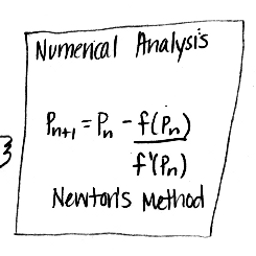 Numerical Analysis
Pn+1 = Pn - f(Pn)
f'(Pn)
Newton's Method
3